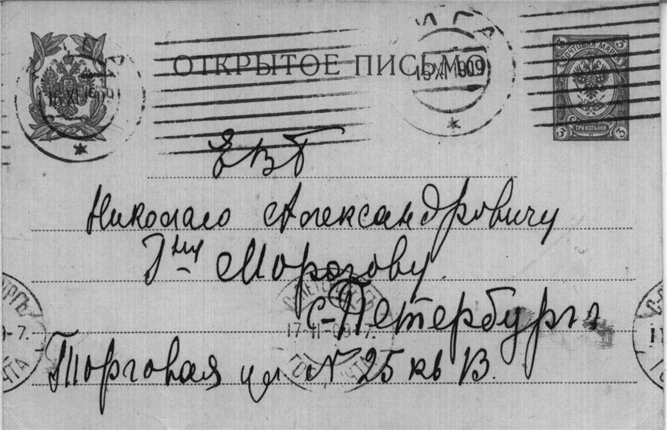 ОТКРЫТОЕ ПИСЬМО
ПОЧТОВАЯ МАРКА
3 3
ТРИ КОПѢЙКИ
3 3
РИГА
16 XI 909
ЕВБ
Николаю Александровичу
Гну Морозову.
С-Петербургъ
Торговая ул N 25 кв 13.
17-11-09-7.